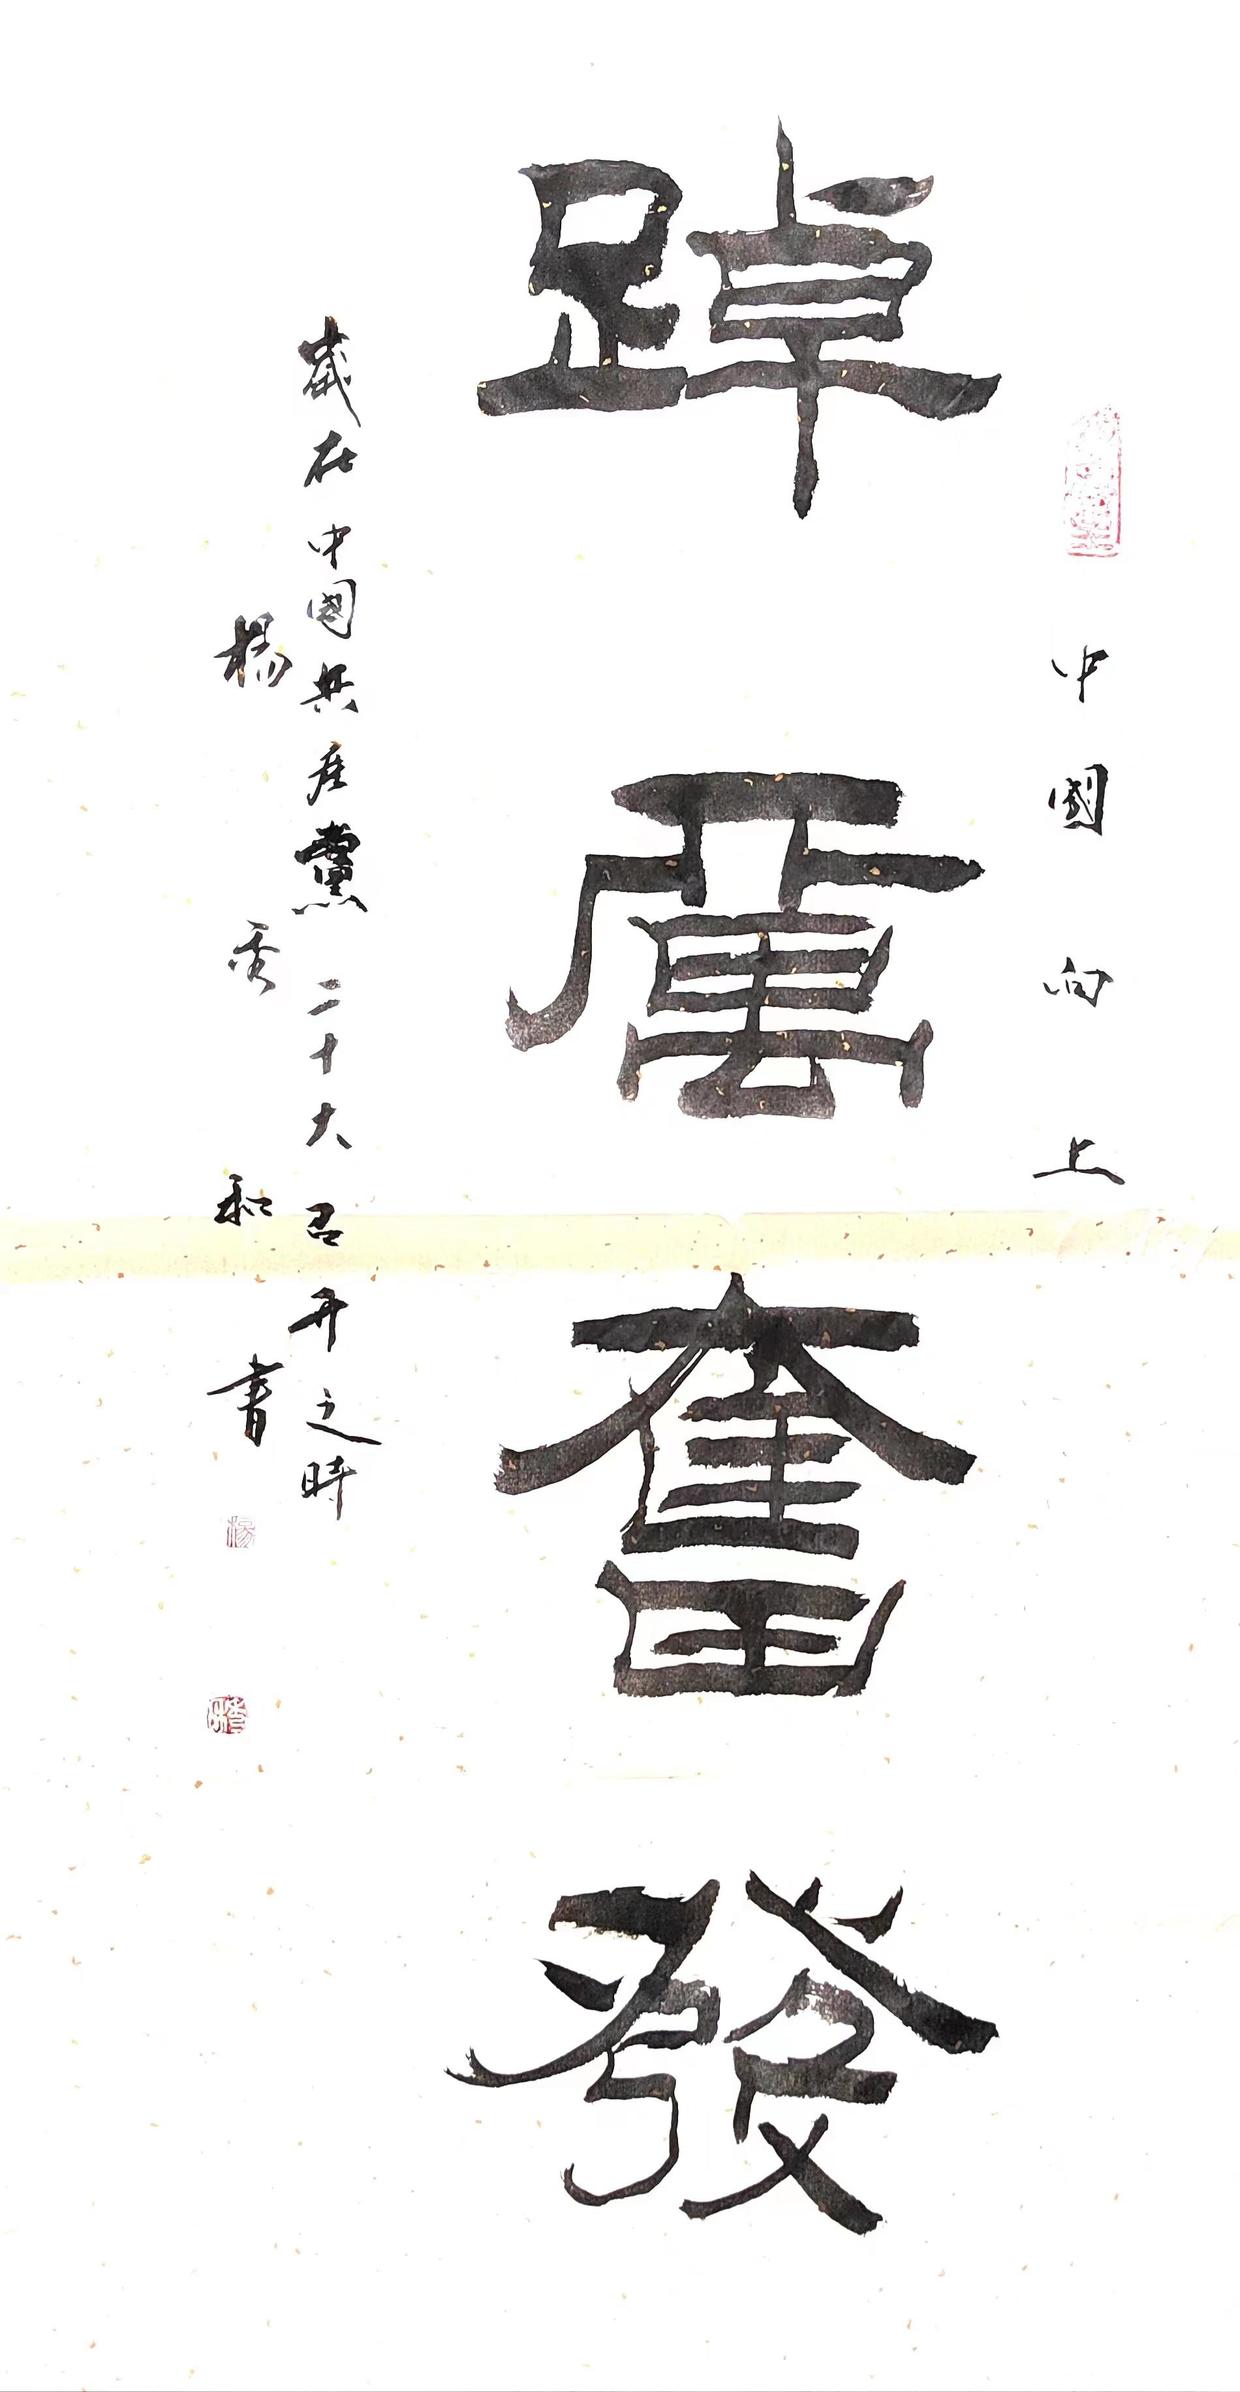 中國向上
踔厲奮發
歲在中國共产黨二十大召开之時
楊秀和書